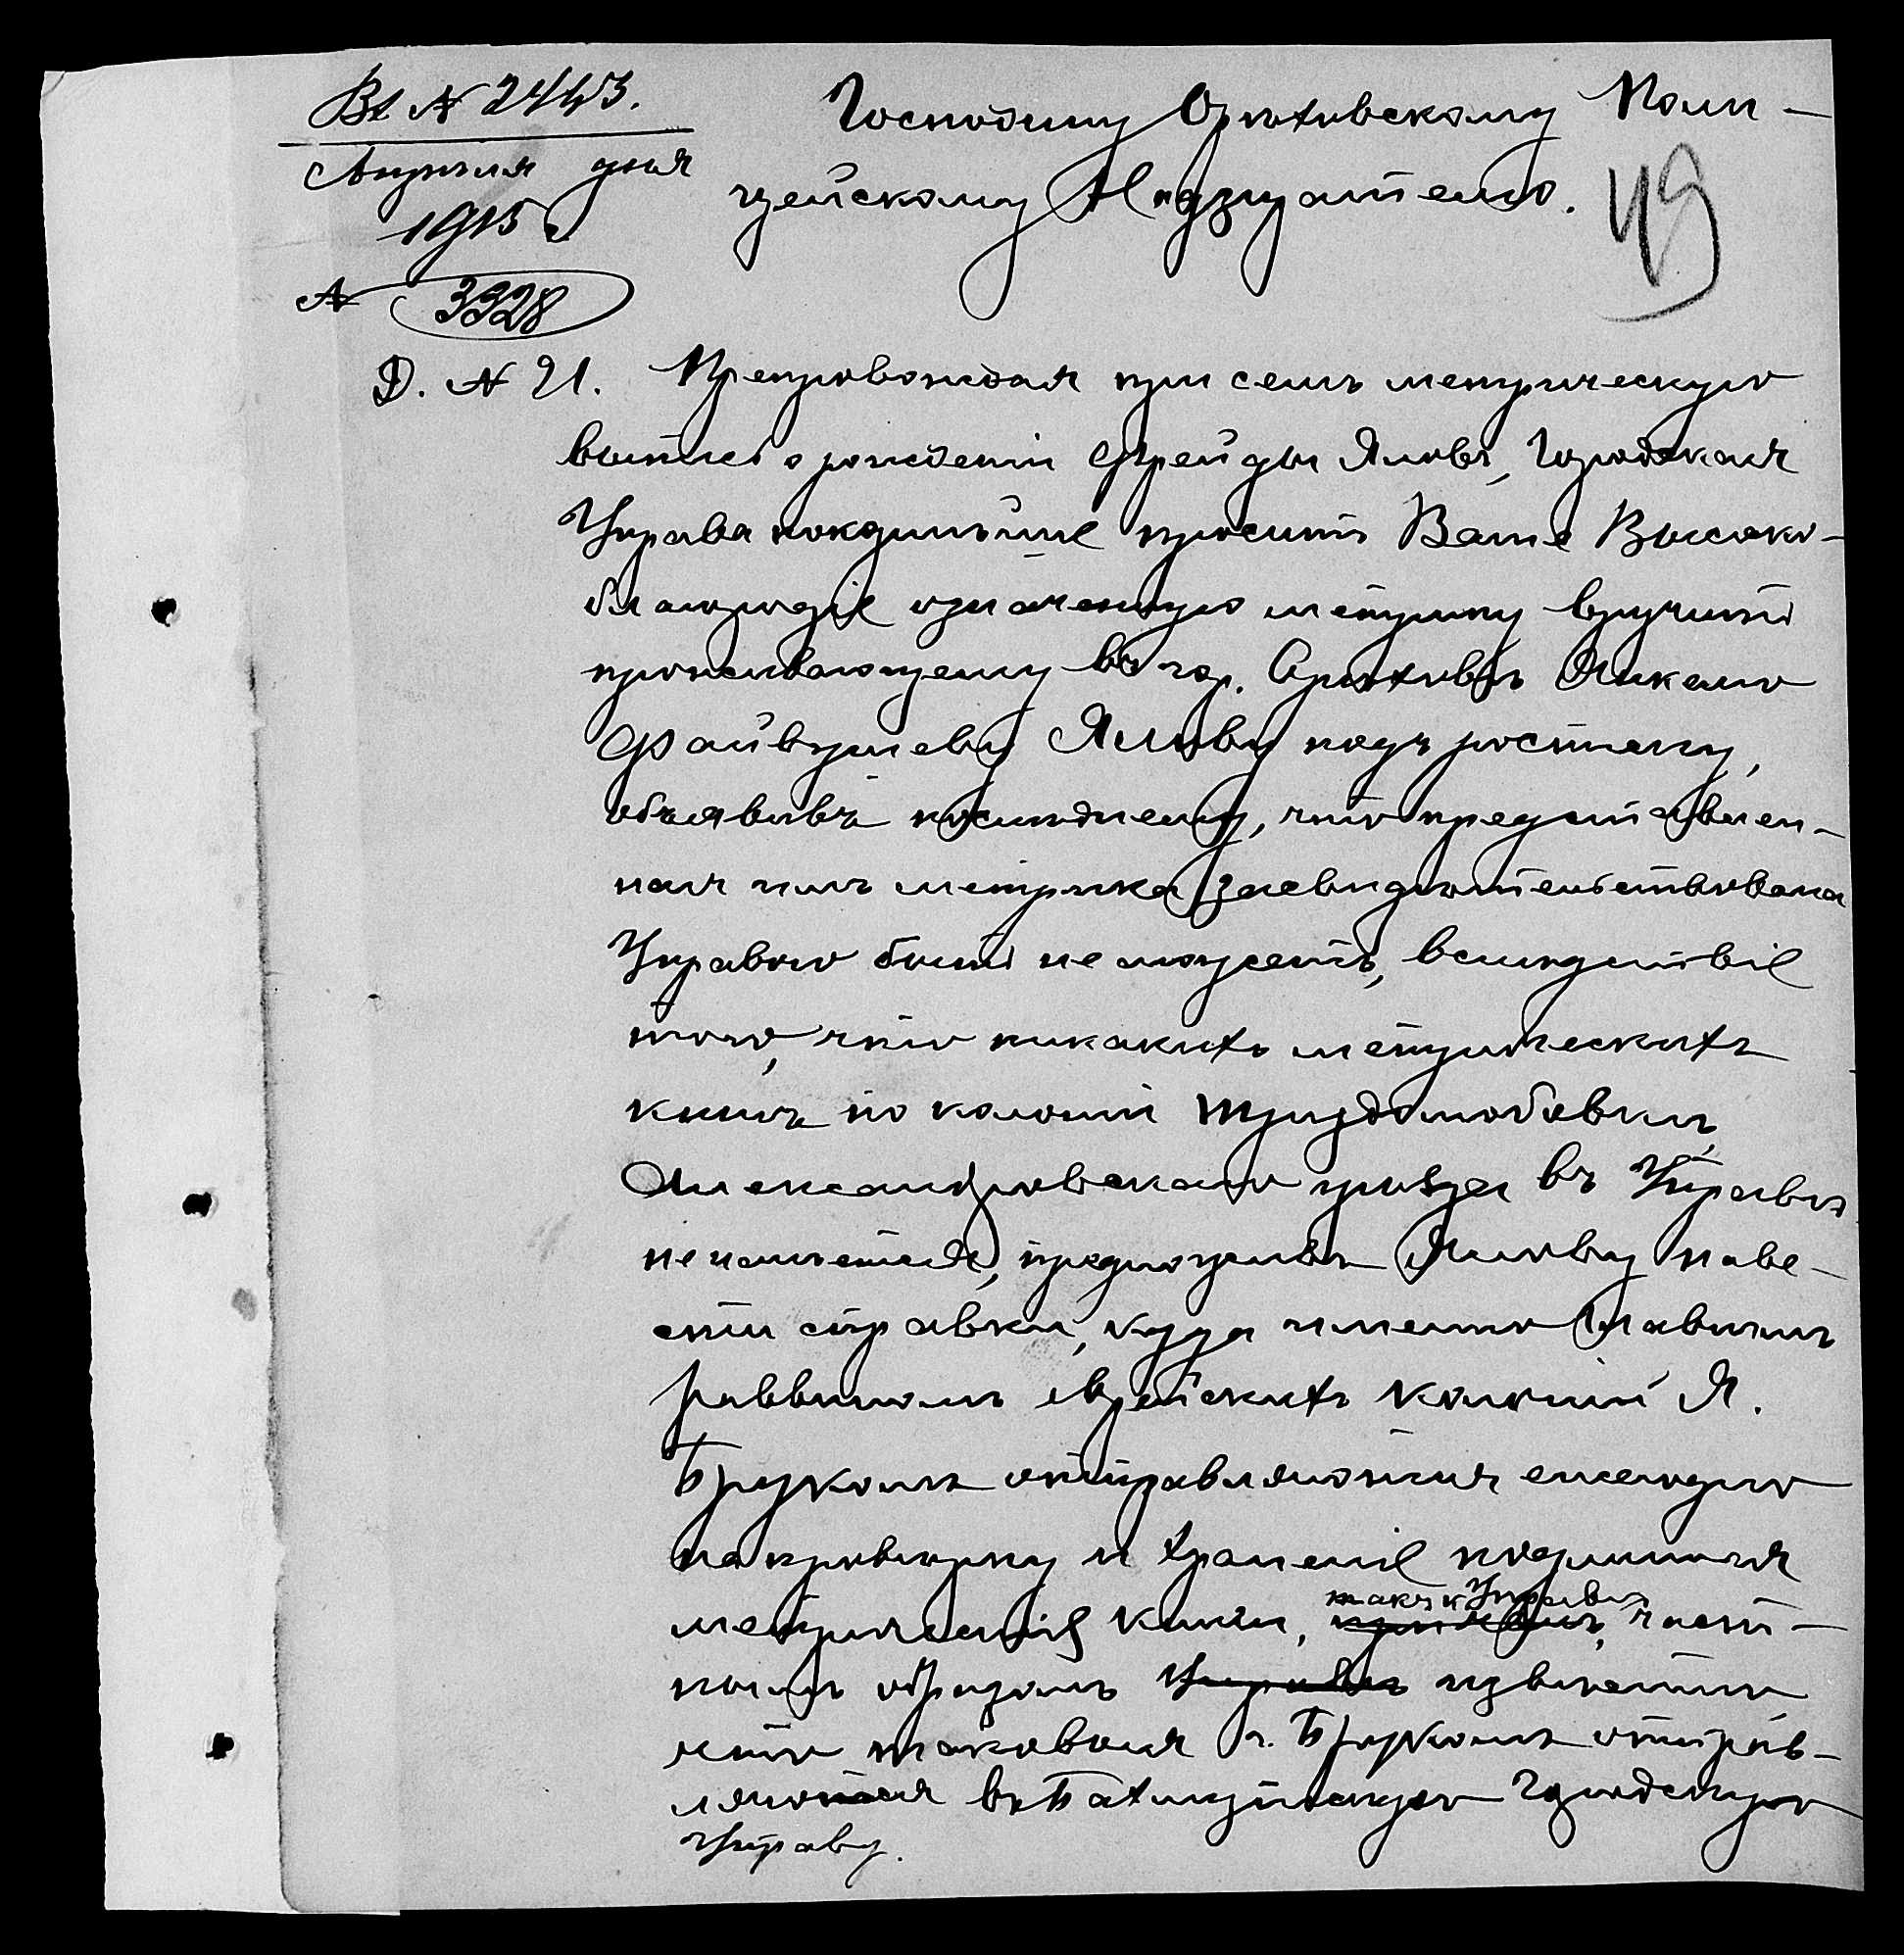 Вх № 2443.
Апреля дня
1915 г
№ 3328
49
Господину Ореховскому Поли-
цейскому Надзирателю.
Д. № 21. Препровождая при семъ метрическую
выпись о рожденіи Фрейды Яловъ, Городская
Управа покорнѣйше проситъ Ваше Высоко-
благородіе означенную метрику вручить
проживающему въ гор. Ореховѣ
Файвушеву Ялову подъ росписку,
объявивъ послѣднему, что представлен-
ная имъ метрика засвидѣтельствована
Управою быть не можетъ, вслѣдствіе
того, что никакихъ метрическихъ
книгъ по колоніи Трудолюбовкѣ,
Александровскаго уѣзда въ Управѣ
не имѣется, предложивъ Ялову наве-
сти справки, куда именно главнымъ
раввиномъ еврейскихъ колоній Я.
Брукомъ отправляются ежегодно
на провѣрку и храненіе подлинныя
метрическія книги, такъ к Управѣ част-
нымъ образомъ Управѣ извѣстно
что таковыя г. Брукомъ отправ-
ляются въ Бахмутскую Городскую
Управу.